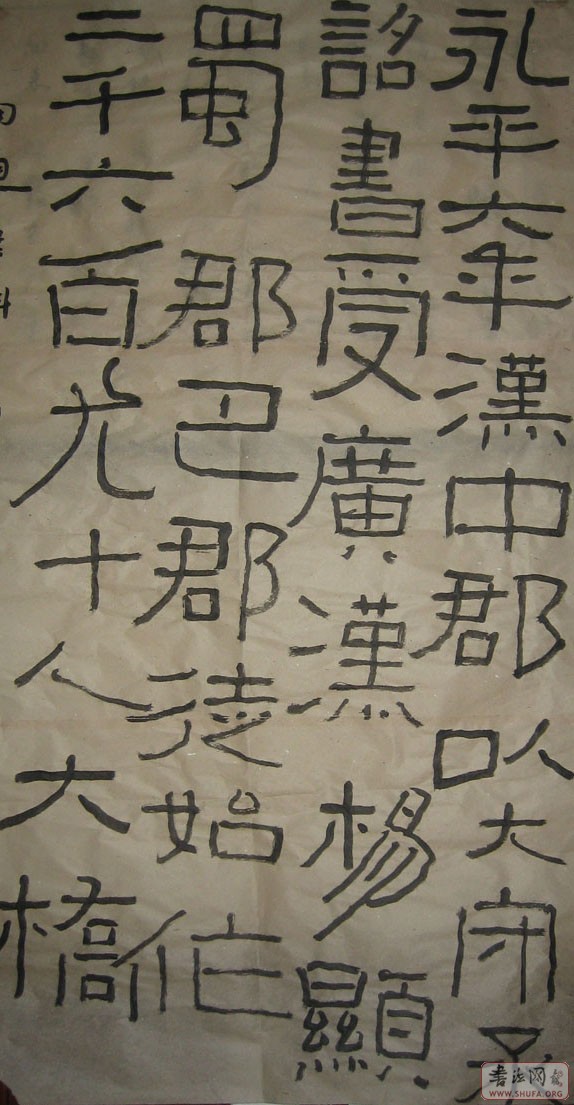 永平六年漢中郡以大守丞
詔書受廣漢楊顯
蜀郡巴郡徒始作
二千六百九十人大橋
书法网
WWW.SHUFA.ORG